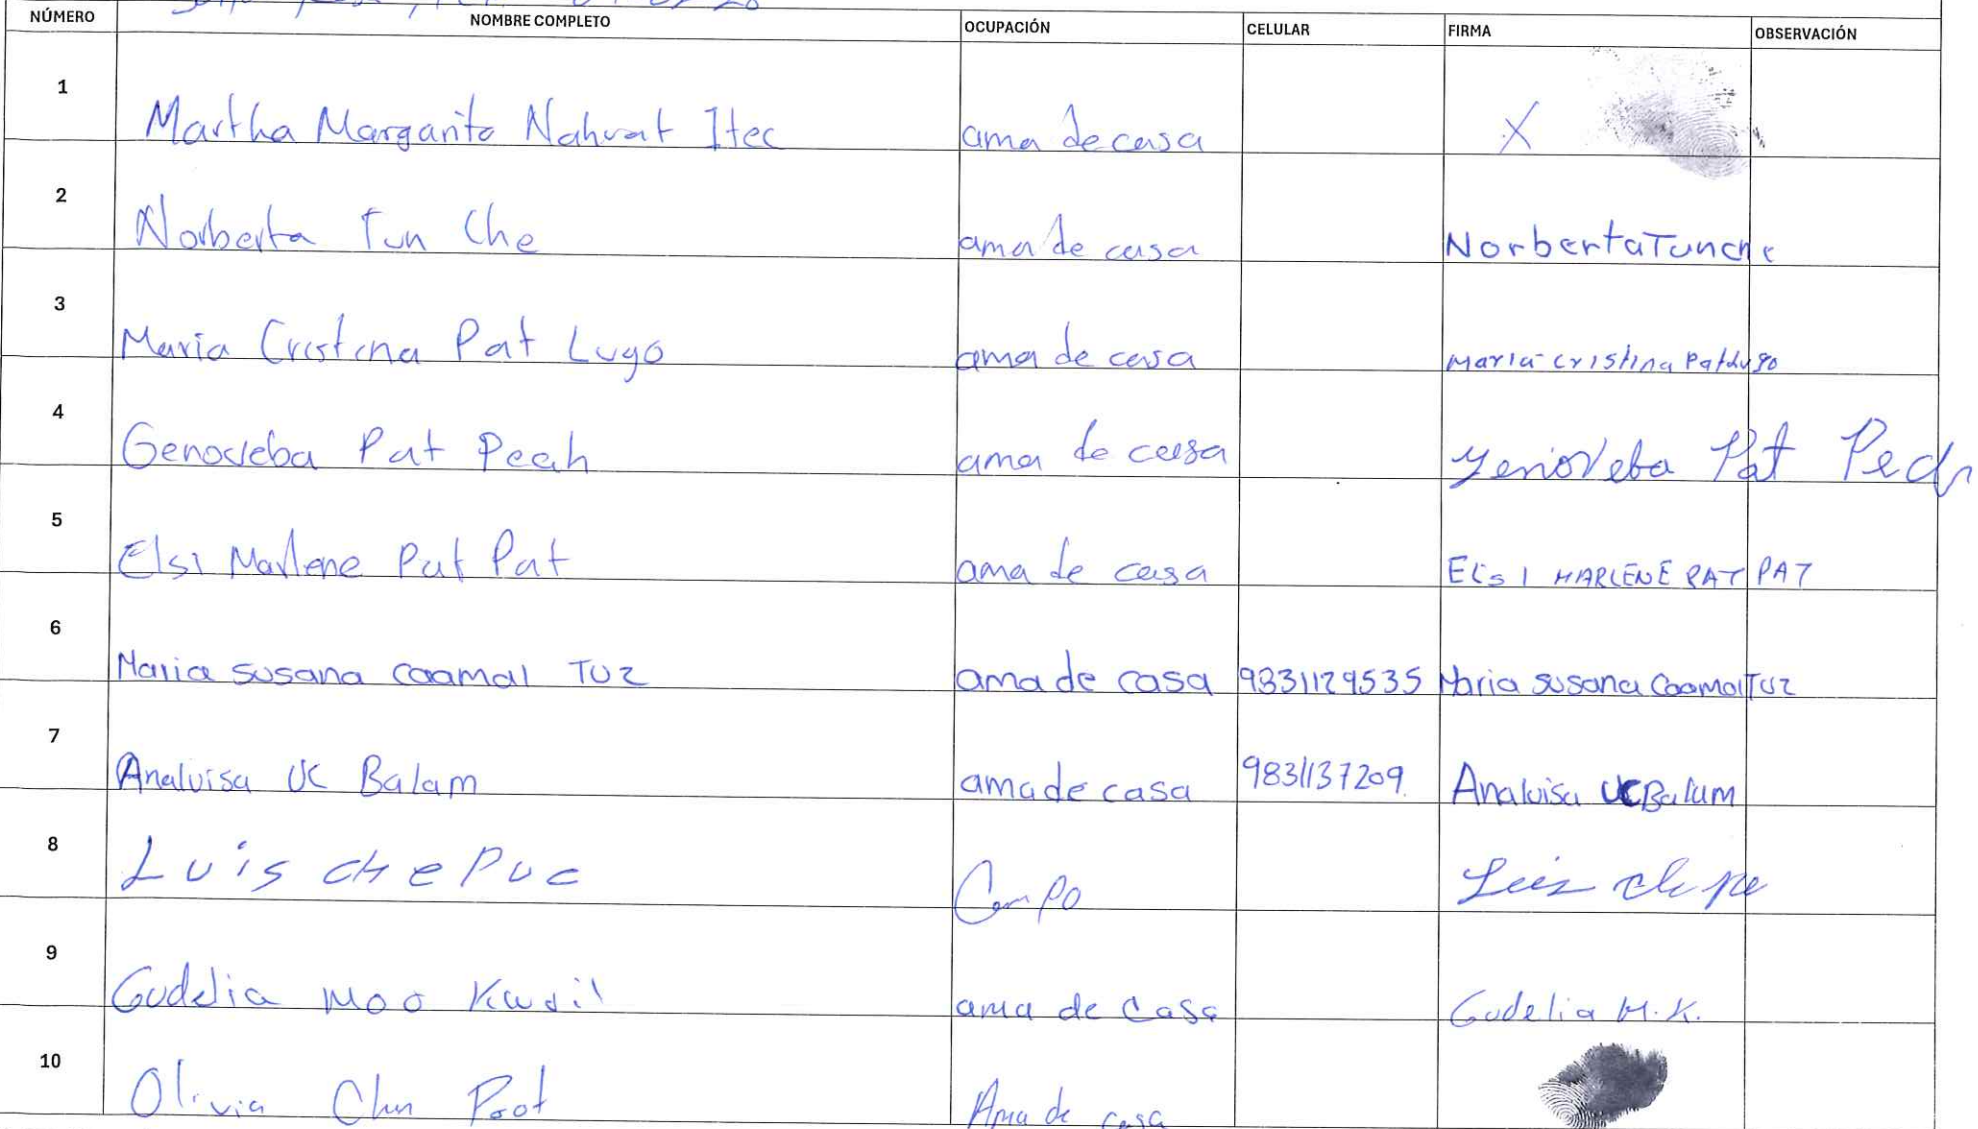 NÚMERO NOMBRE COMPLETO OCUPACIÓN CELULAR FIRMA OBSERVACIÓN
1 Martha Margarita Nahuat Itec ama de casa X
2 Norberta Tun Che ama de casa Norberta Tunche
3 Maria Cristina Pat Lugo ama de casa Maria Cristina Pat Lugo
4 Genoveba Pat Peah ama de casa Yenoveba Pat Pech
5 Elsi Marlene Pat Pat ama de casa Elsi MARLENE PAT PAT
6 Maria Susana Caamal TUZ ama de casa 9831129535 Maria Susana Caamal Tuz
7 Analuisa UC Balam ama de casa 9831137209 Analuisa UC Balam
8 Luis che puc Campo Luis che
9 Gudelia Moo Kauil ama de casa Gudelia M.K.
10 Olivia Chun Poot Ama de casa